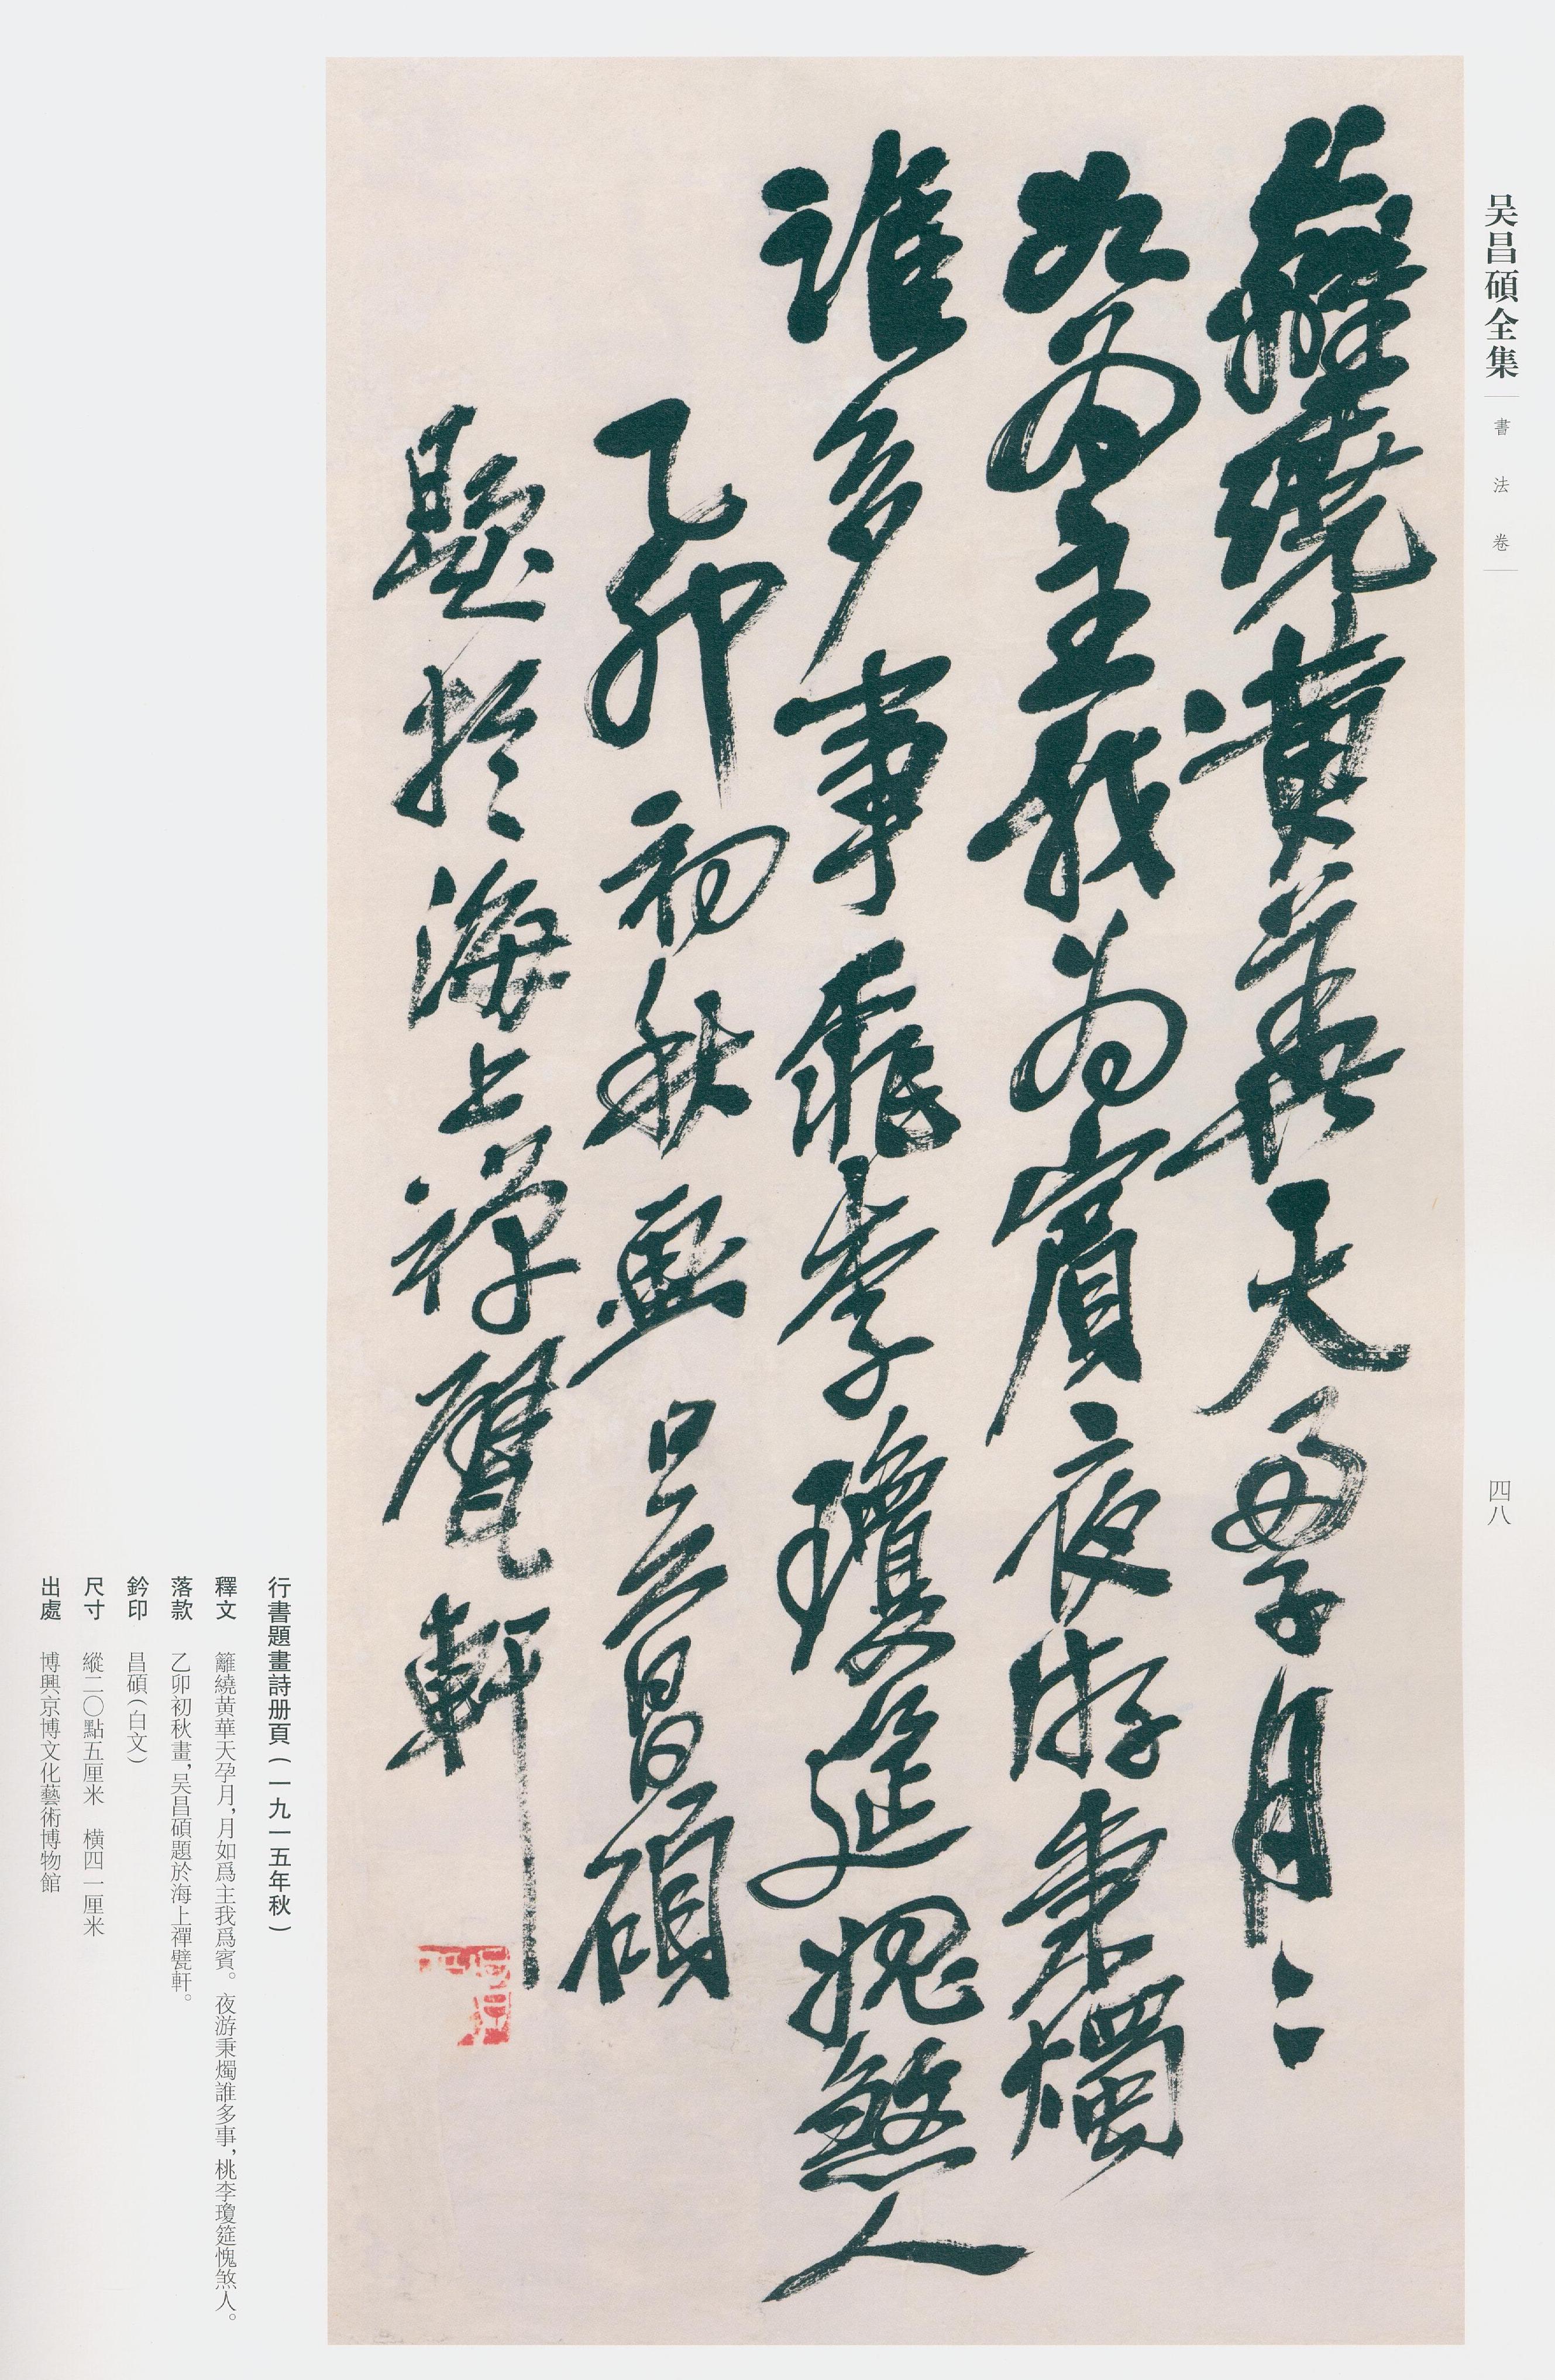 吴昌碩全集
書法卷
四八
籬繞黄華天孕月〻
如為主我為賓夜游秉燭
誰多事桃李瓊筵愧煞人
乙卯初秋畫吴昌碩
題於海上禪甓軒
行書題畫詩册頁（一九一五年秋）
釋文　籬繞黄華天孕月，月如爲主我爲賓。夜游秉燭誰多事，桃李瓊筵愧煞人。
落款　乙卯初秋畫，吴昌碩題於海上禪甓軒。
鈐印　昌碩（白文）
尺寸　縱二〇點五厘米　横四一厘米
出處　博興京博文化藝術博物館